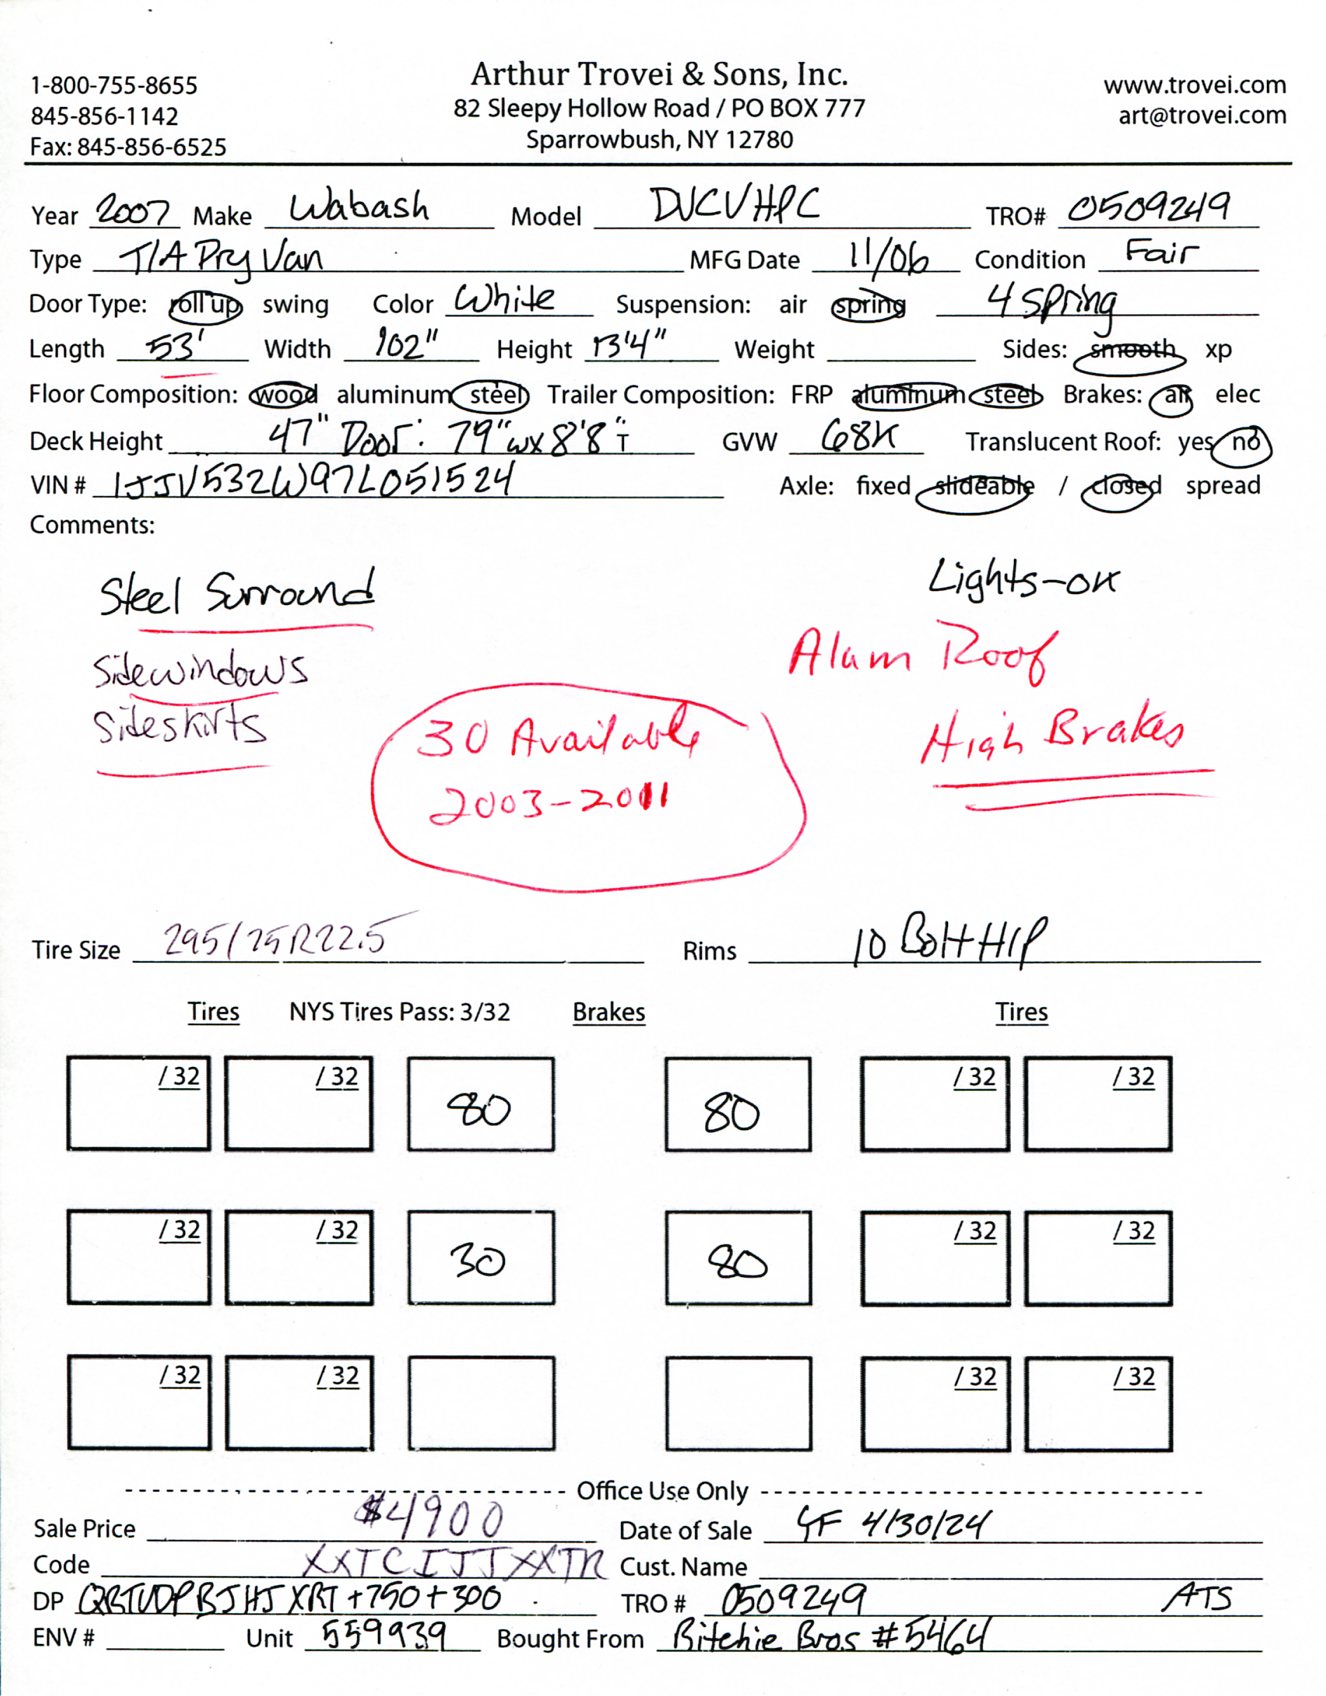 1-800-755-8655
845-856-1142
Fax: 845-856-6525
Arthur Trovei & Sons, Inc.
82 Sleepy Hollow Road / PO BOX 777
Sparrowbush, NY 12780
www.trovei.com
art@trovei.com
Year 2007 Make Wabash Model DVCVHPC TRO# 0509249
Type T/A Dry Van MFG Date 11/06 Condition Fair
Door Type: roll up swing Color White Suspension: air spring 4 spring
Length 53' Width 102" Height 13'4" Weight Sides: smooth xp
Floor Composition: wood aluminum steel Trailer Composition: FRP aluminum steel Brakes: air elec
Deck Height 47" Door: 79"w x 8'8"T GVW 68K Translucent Roof: yes no
VIN # 1JJV532W97L051524 Axle: fixed slideable / closed spread
Comments:
Steel Surround
Lights-OK
Sidewindows
Alum Roof
Sideskirts
30 Available
2003-2011
High Brakes
Tire Size 295/75R22.5 Rims 10 Bolt H/P
Tires NYS Tires Pass: 3/32 Brakes Tires
/ 32 / 32 80 80 / 32 / 32
/ 32 / 32 30 80 / 32 / 32
/ 32 / 32 / 32 / 32
Office Use Only
Sale Price $4900 Date of Sale GF 4/30/24
Code XXTCIJJXXTR Cust. Name
DP QRTUDPBJHJXRT +750+300 TRO # 0509249 ATS
ENV # Unit 559939 Bought From Ritchie Bros #5464